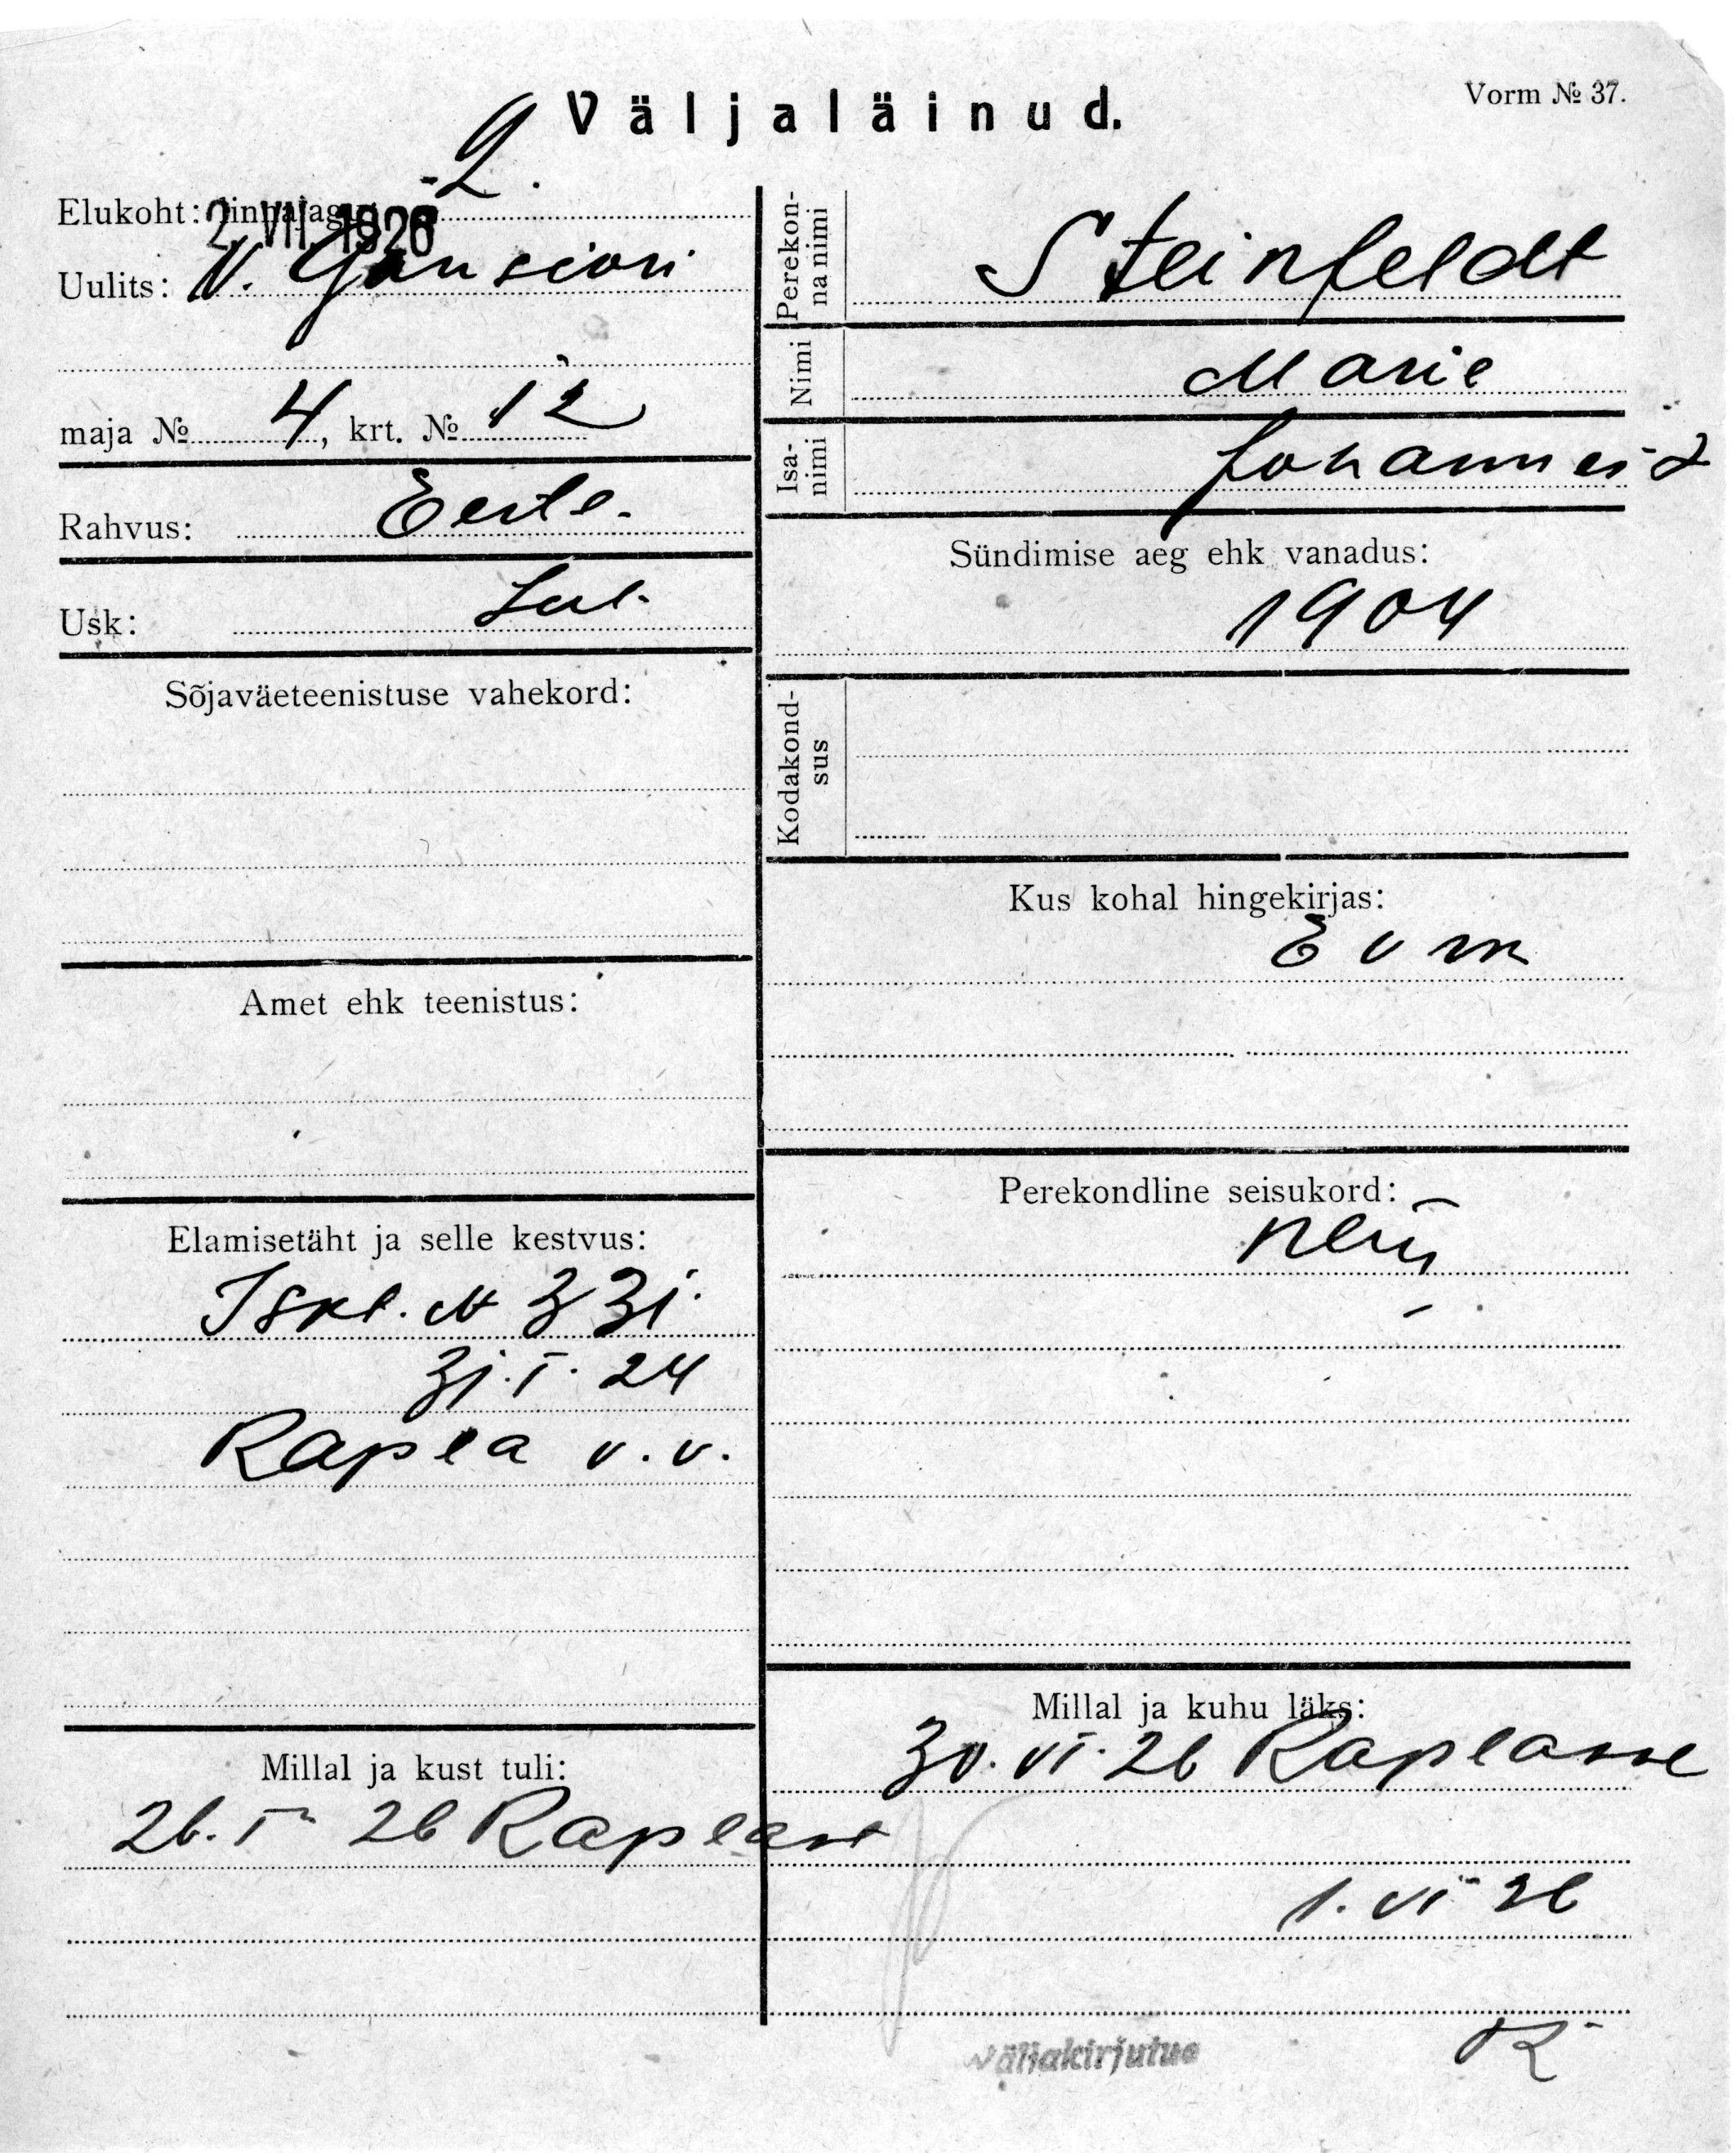 Vorm № 37.
Väljaläinud.
Elukoht: linnajagu 2.
2. VII 1926
Uulits: V. Gonsiori
maja № 4, krt. № 12
Rahvus: Eesti.
Usk: Lut.
Sõjaväeteenistuse vahekord:
Amet ehk teenistus:
Elamisetäht ja selle kestvus:
Iskt. N 331.
31.I.24
Rapla v.v.
Millal ja kust tuli:
26.I 26 Raplast
Perekonna nimi
Steinfeldt
Nimi
Marie
Isanimi
Johannes t
Sündimise aeg ehk vanadus:
1904
Kodakondsus
Kus kohal hingekirjas:
E v m
Perekondline seisukord:
Millal ja kuhu läks:
30.VI.26 Raplasse
1.VI 26
Väljakirjutus
R